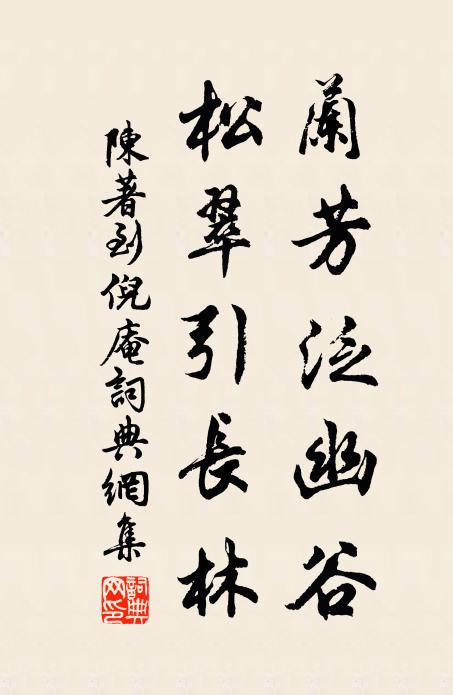 蘭芳泛幽谷
松翠引長林
陳著到倪庵詞典網集
詞典網印